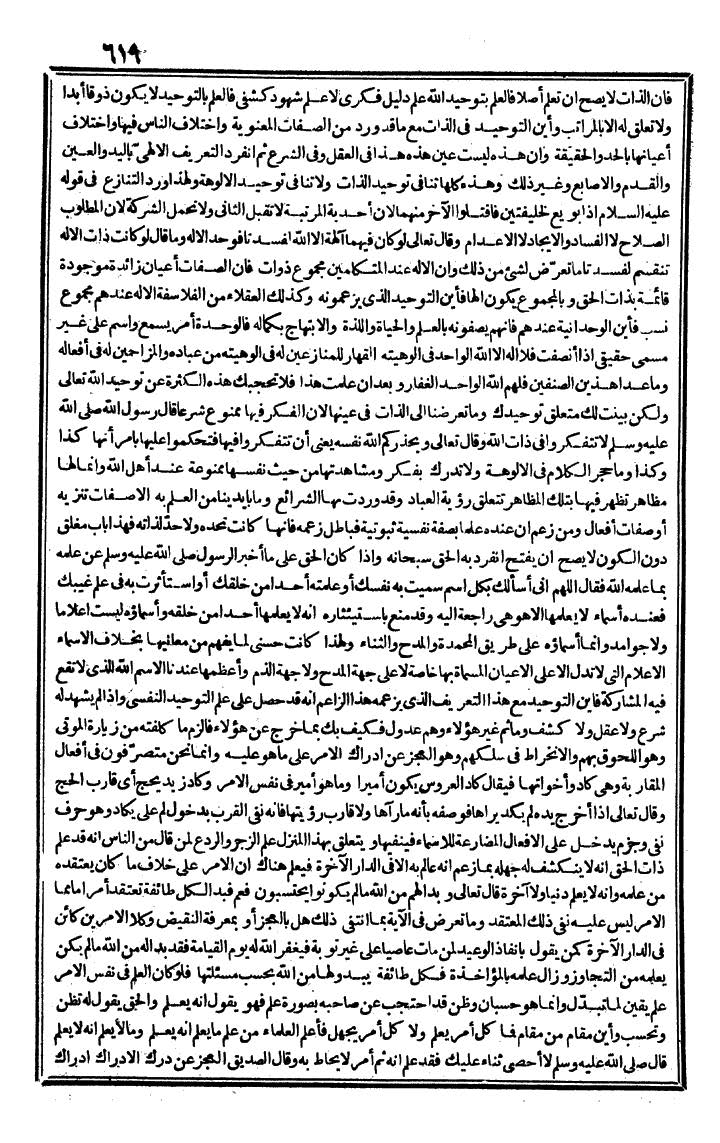 ٦١٩
فان الذات لا يصح ان تعلم أصلا فالعلم بتوحيد الله علم دليل فكرى لا علم شهود كشفى فالعلم بالتوحيد لا يكون ذوقا أبدا
ولا تعلق له الا بالمراتب وأين التوحيد فى الذات مع ما قد ورد من الصفات المعنوية واختلاف الناس فيها واختلاف
أعيانها بالحد والحقيقة وان هذه ليست عين هذه هذا فى العقل وفى الشرع ثم انفرد التعريف الالهىّ باليد والعين
والقدم والاصابع وغير ذلك وهذه كلها تنافى توحيد الذات ولا تنافى توحيد الالوهة ولهذا ورد التنازع فى قوله
عليه السلام اذا بويع لخليفتين فاقتلوا الآخر منهما لان أحدية المرتبة لا تقبل الثانى ولا تحمل الشركة لان المطلوب
الصلاح لا الفساد والايجاد لا الاعدام وقال تعالى لو كان فيهما آلهة الا الله لفسدتا فوحد الاله وما قال لو كانت ذات الاله
تنقسم لفسدتا ما تعرّض لشئ من ذلك وان الاله عند المتكلمين مجموع ذوات فان الصفات أعيان زائدة موجودة
قائمة بذات الحق وبالمجموع يكون الها فأين التوحيد الذى يزعمونه وكذلك العقلاء من الفلاسفة الاله عندهم مجموع
نسب فأين الوحدانية عندهم فانهم يصفونه بالعلم والحياة واللذة والابتهاج بكماله فالوحدة أمر يسمع واسم على غير
مسمى حقيقى اذا أنصفت فلا اله الا الله الواحد فى الوهيته القهار للمنازعين له فى الوهيته من عباده والمزاحمين له فى أفعاله
وما عدا هذين الصنفين فلهم الله الواحد الغفار وبعد ان علمت هذا فلا تحجبك هذه الكثرة عن توحيد الله تعالى
ولكن بينت لك متعلق توحيدك وما تعرضنا الى الذات فى عينها لان الفكر فيها ممنوع شرعا قال رسول الله صلى الله
عليه وسلم لا تتفكروا فى ذات الله وقال تعالى ويحذركم الله نفسه يعنى أن تتفكروا فيها فتحكموا عليها بامر أنها كذا
وكذا وما حجر الكلام فى الالوهة ولا تدرك بفكر ومشاهدتها من حيث نفسها ممنوعة عند أهل الله وانما لها
مظاهر تظهر فيها بتلك المظاهر تتعلق رؤية العباد وقد وردت بها الشرائع وما بايدينا من العلم به الا صفات تنزيه
أو صفات أفعال ومن زعم ان عنده علما بصفة نفسية ثبوتية فباطل زعمه فانها كانت تحده ولا حدّ لذاته فهذا باب مغلق
دون الكون لا يصح ان يفتح انفرد به الحق سبحانه واذا كان الحق على ما أخبر الرسول صلى الله عليه وسلم عن علمه
بما علمه الله فقال اللهم انى أسألك بكل اسم سميت به نفسك أو علمته أحدا من خلقك أو استأثرت به فى علم غيبك
فعنده أسماء لا يعلمها الا هو هى راجعة اليه وقد منع باستيئثاره انه لا يعلمها أحدا من خلقه وأسماؤه ليست اعلاما
ولا جوامد وانما أسماؤه على طريق المحمدة والمدح والثناء ولهذا كانت حسنى لما يفهم من معانيها بخلاف الاسماء
الاعلام التى لا تدل الا على الاعيان المسماة بها خاصة لا على جهة المدح ولا جهة الذم وأعظمها عندنا الاسم الله الذى لا تقع
فيه المشاركة فأين التوحيد مع هذا التعريف الذى يزعمه هذا الزاعم انه قد حصل على علم التوحيد النفسى واذا لم يشهد له
شرع ولا عقل ولا كشف وما ثم غير هؤلاء وهم عدول فكيف بك بما خرج عن هؤلاء فالزم ما كلفته من زيارة الموتى
وهو اللحوق بهم والانخراط فى سلكهم وهو العجز عن ادراك الامر على ما هو عليه وانما نحن متصرّفون فى أفعال
المقاربة وهى كاد وأخواتها فيقال كاد العروس يكون أميرا وما هو أمير فى نفس الامر وكاد زيد يحج أى قارب الحج
وقال تعالى اذا أخرج يده لم يكد يراها فوصفه بأنه ما رآها ولا قارب رؤيتها فانه نفى القرب بدخول لم على يكاد وهو حرف
نفى وجزم يدخل على الافعال المضارعة للاسماء فينفيها ويتعلق بهذا المنزل علم الزجر والردع لمن قال من الناس انه قد علم
ذات الحق انه لا ينكشف له جهله بما زعم انه عالم به الا فى الدار الآخرة فيعلم هناك ان الامر على خلاف ما كان يعتقده
من علمه وانه لا يعلم دنيا ولا آخرة قال تعالى وبدا لهم من الله ما لم يكونوا يحتسبون فعم فبدا لكل طائفة تعتقد أمرا مما ما
الامر ليس عليه نفى ذلك المعتقد وما تعرض فى الآية بما انتفى ذلك هل بالعجز أو بمعرفة النقيض وكلا الامرين كائن
فى الدار الآخرة كمن يقول بانفاذ الوعيد لمن مات عاصيا على غير توبة فيغفر الله له يوم القيامة فقد بدا له من الله ما لم يكن
يعلمه من التجاوز وزال علمه بالمؤاخذة فكل طائفة يبدو لها من الله بحسب مسئلتها فلو كان العلم فى نفس الامر
علم يقين لما تبدّل وانما هو حسبان وظن قد احتجب عن صاحبه بصورة علم فهو يقول انه يعلم والحق يقول له تظن
وتحسب وأين مقام من مقام فما كل أمر يعلم ولا كل أمر يجهل فأعلم العلماء من علم ما يعلم انه يعلم وما لا يعلم انه لا يعلم
قال صلى الله عليه وسلم لا أحصى ثناء عليك فقد علم انه ثم أمر لا يحاط به وقال الصديق العجز عن درك الادراك ادراك